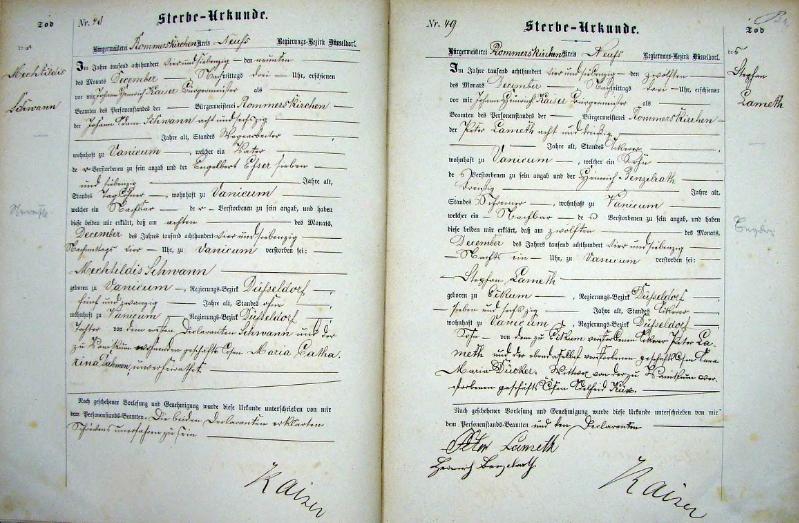 Tod
Nr. 48
Sterbe-Urkunde.
des
Mechtildis
Schwann
Bürgermeisterei Rommerskirchen Kreis Neuss Regierungs-Bezirk Düsseldorf.
Im Jahre tausend achthundert vier und siebenzig den neunten
des Monats December, Nachmittags drei Uhr, erschienen
vor mir Johann Heinrich Kaiser Bürgermeister als
Beamten des Personenstands der Bürgermeisterei Rommerskirchen
der Johann Schwann acht und sechszig
Jahre alt, Standes
wohnhaft zu Vanicum, welcher ein Vater
de r Verstorbenen zu sein angab und der Engelbert Esser sieben
und siebenzig Jahre alt,
Standes Taglöhner, wohnhaft zu Vanicum
welcher ein Nachbar de r Verstorbenen zu sein angab, und haben
diese beiden mir erklärt, daß am achten des Monats
December des Jahrs tausend achthundert vier und siebenzig
Nachmittags vier Uhr, zu Vanicum verstorben sei:
Mechtildis Schwann
geboren zu Vanicum, Regierungs-Bezirk Düsseldorf
fünf und zwanzig Jahre alt, Standes ohne
wohnhaft zu Vanicum, Regierungs-Bezirk Düsseldorf
Tochter von dem ersten Declaranten Schwann und der
zu Vanikum wohnenden geschäftslosen Maria Catha
rina, unverheirathet
Nach geschehener Vorlesung und Genehmigung wurde diese Urkunde unterschrieben von mir
dem Personenstands-Beamten. Die beiden Declaranten erklärten
Schreibens unerfahren zu sein
Kaiser
Nr. 49
Sterbe-Urkunde.
Tod
des
Stephan
Lameth
Bürgermeisterei Rommerskirchen Kreis Neuss Regierungs-Bezirk Düsseldorf.
Im Jahre tausend achthundert vier und siebenzig den zwölften
des Monats December Nachmittags drei Uhr, erschienen
vor mir Johann Heinrich Kaiser Bürgermeister als
Beamten des Personenstands der Bürgermeisterei Rommerskirchen
der Peter Lameth acht und dreißig
Jahre alt, Standes Ackerer
wohnhaft zu Vanicum, welcher ein Sohn
de s Verstorbenen zu sein angab und der Heinrich Benzelrath
dreißig Jahre alt,
Standes, wohnhaft zu Vanicum
welcher ein Nachbar de s Verstorbenen zu sein angab, und haben
diese beiden mir erklärt, daß am zwölften des Monats
December des Jahrs tausend achthundert vier und siebenzig
Nachts ein Uhr, zu Vanicum verstorben sei:
Stephan Lameth
geboren zu Eckum, Regierungs-Bezirk Düsseldorf
sieben und sechszig Jahre alt, Standes Ackerer
wohnhaft zu Vanicum, Regierungs-Bezirk Düsseldorf
Sohn von dem zu Eckum verstorbenen Ackerer Peter La
meth und der ebendaselbst verstorbenen geschäftslosen Anna
Maria Dücker. Wittwer von der zu Vanikum ver
storbenen geschäftslosen
Nach geschehener Vorlesung und Genehmigung wurde diese Urkunde unterschrieben von mir
dem Personenstands-Beamten und den Declaranten
Peter Lameth
Heinrich Benzelrath
Kaiser